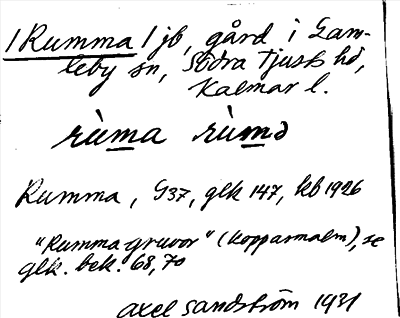 /Rumma/ jb, gård i Gam-
leby sn, Södra Tjusts hd,
Kalmar l.
rùma rùmə
Rumma, G37, glk 147, kb 1926
"Rumma gruvor" (kopparmalm), se
glk. bek. 68, 70
Axel Sandström 1931